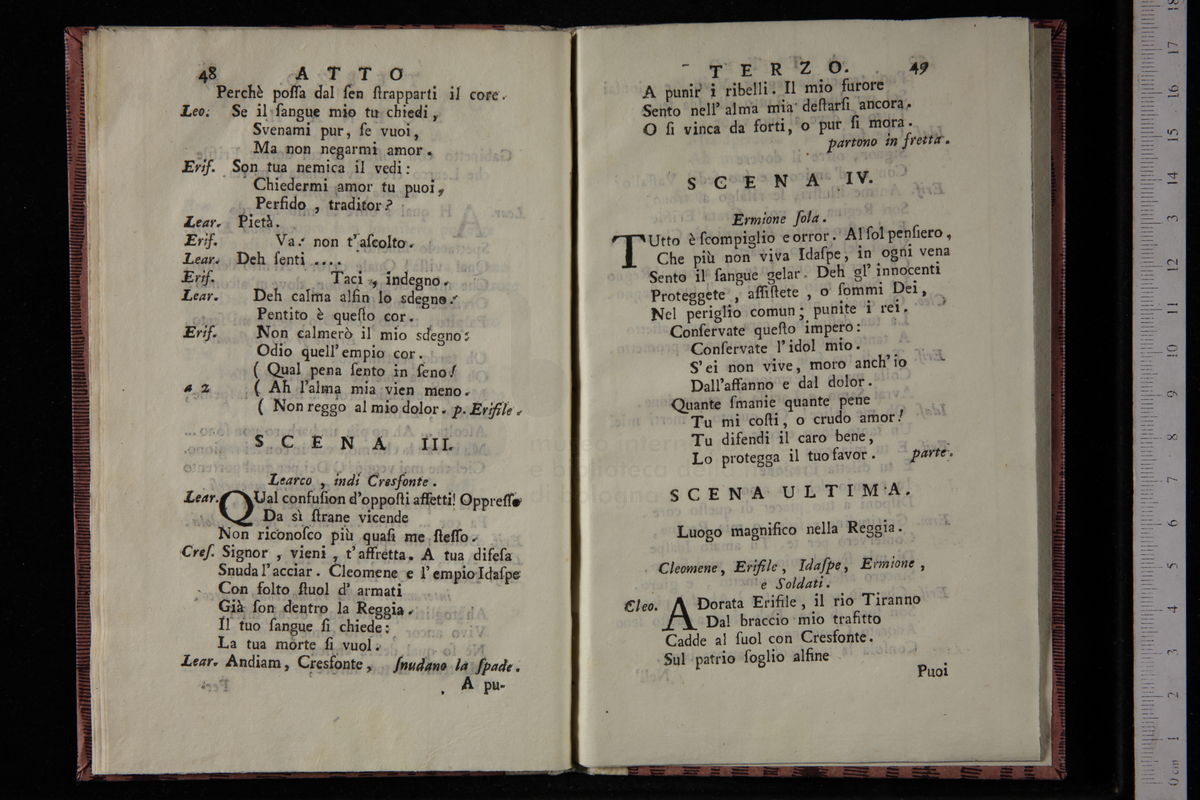 48 ATTO
Perchè poſſa dal ſen ſtrapparti il core.
Leo. Se il ſangue mio tu chiedi,
Svenami pur, ſe vuoi,
Ma non negarmi amor.
Eriſ. Son tua nemica il vedi:
Chiedermi amor tu puoi,
Perfido, traditor?
Lear. Pietà.
Eriſ. Va: non t'aſcolto.
Lear. Deh ſenti ....
Eriſ. Taci, indegno.
Lear. Deh calma alfin lo sdegno:
Pentito è queſto cor.
Eriſ. Non calmerò il mio sdegno:
Odio quell' empio cor.
( Qual pena ſento in ſeno!
a 2 ( Ah l'alma mia vien meno.
( Non reggo al mio dolor. p. Erifile.
SCENA III.
Learco, indi Cresfonte.
Lear. QUal confuſion d'oppoſti affetti! Oppreſſo
Da sì ſtrane vicende
Non riconoſco più quaſi me ſteſſo.
Creſ. Signor, vieni, t'affretta. A tua difeſa
Snuda l'acciar. Cleomene e l'empio Idaſpe
Con folto ſtuol d' armati
Già ſon dentro la Reggia.
Il tuo ſangue ſi chiede:
La tua morte ſi vuol.
Lear. Andiam, Cresfonte, ſnudano la ſpade.
A pu-
TERZO. 49
A punir i ribelli. Il mio furore
Sento nell' alma mia deſtarſi ancora.
O ſi vinca da forti, o pur ſi mora.
partono in fretta.
SCENA IV.
Ermione ſola.
TUtto è ſcompiglio e orror. Al ſol penſiero,
Che più non viva Idaſpe, in ogni vena
Sento il ſangue gelar. Deh gl' innocenti
Proteggete, aſſiſtete, o ſommi Dei,
Nel periglio comun; punite i rei.
Conſervate queſto impero:
Conſervate l'idol mio.
S' ei non vive, moro anch' io
Dall'affanno e dal dolor.
Quante ſmanie quante pene
Tu mi coſti, o crudo amor!
Tu difendi il caro bene,
Lo protegga il tuo favor. parte.
SCENA ULTIMA.
Luogo magnifico nella Reggia.
Cleomene, Erifile, Idaſpe, Ermione,
e Soldati.
Cleo. ADorata Erifile, il rio Tiranno
Dal braccio mio trafitto
Cadde al ſuol con Cresfonte.
Sul patrio ſoglio alfine
Puoi